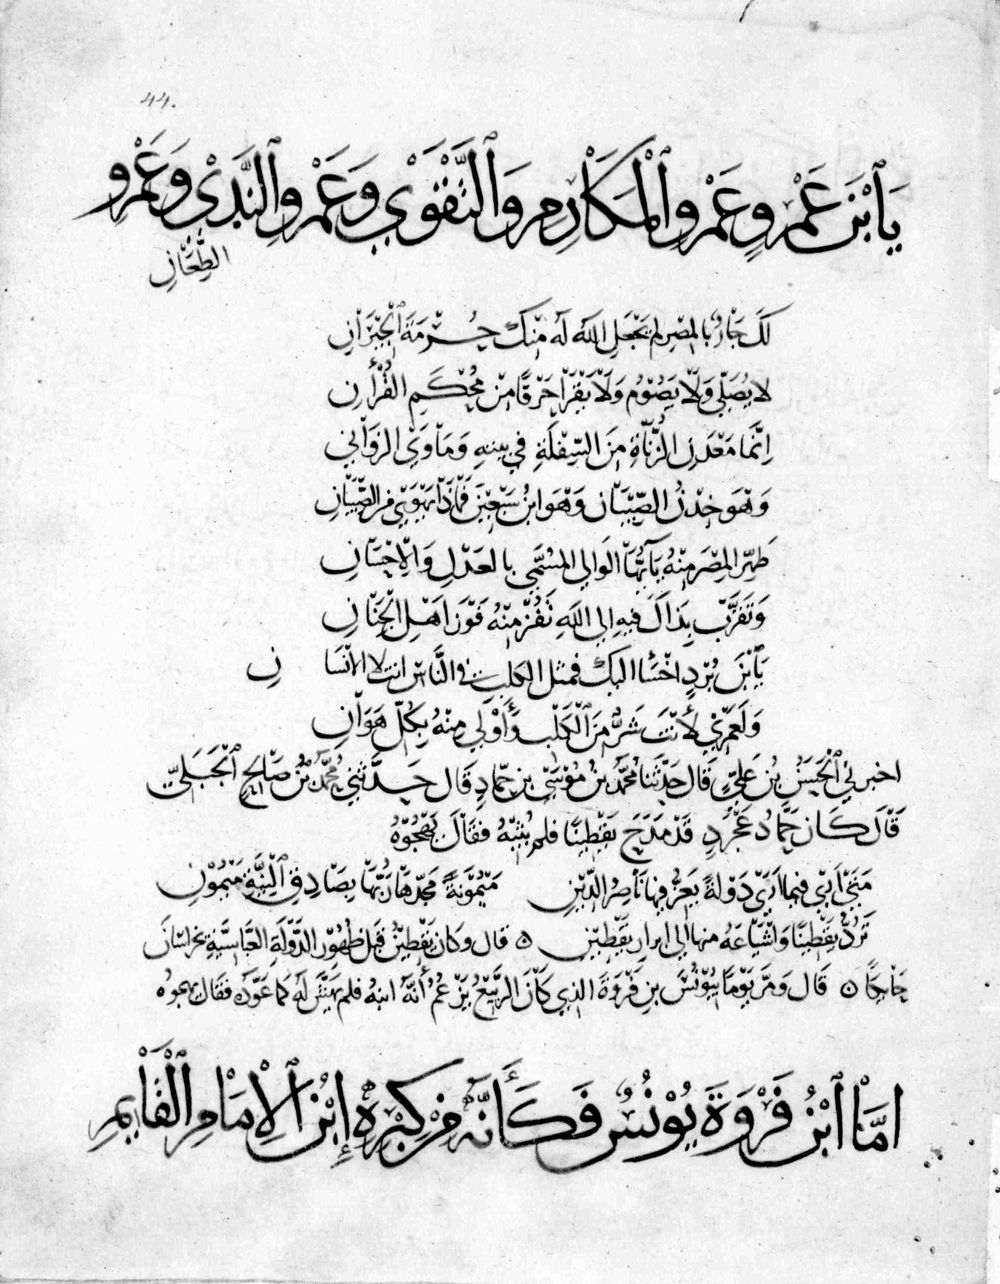 44.
يَا ٱبْنَ عَمْرٍو وَعَمْرِو ٱلْمَكَارِمِ وَٱلتَّقْوَى وَعَمْرِو ٱلنَّدَى وَعَمْرِو
الطِّعَانِ
لَكَ جَارٌ بالمِصْرِ لم يَجْعَلِ اللّه لَه مِنْكَ حُرْمَةَ ٱلْجِيرَانِ
لا يُصَلّي وَلَا يَصُوْمُ وَلَا يَقْرَا حَرْفًا مِنْ مُحْكَمِ القُرْآنِ
اِنَّمَا مَعْدَنِ الزُّنَاةِ مِنَ السِّفْلَةِ في بيته وَمَاوَى الزوَاني
وَهْوَ خِدْنُ الصِّبْيَان وَهْوَ ابنُ سَبْعِيْنَ فَمَاذَا يَهْوَى مِنَ الصِّبْيَانِ
طَهِّرِ المِصْرَ مِنْهُ يَا اَيُّهَا الوَالي المُسَمَّى بالعَدْلِ وَالْاِحْسَانِ
وَتَقَرَّبْ بِذَاكَ فيهِ اِلى اللّهِ تَفُزْ مِنْهُ فَوْزَ اَهْلِ الْجِنَانِ
يَا ٱبْنَ بُرْدٍ اخْسَا اليكَ فمثل الكلب في النَّاس انت لا الانسَا نِ
وَلَعَمْرِي لَأَنْتَ شَرٌّ مِنَ ٱلْكَلْبِ وَأَوْلَى مِنْهُ بِكُلِّ هَوَانِ
اخبرني ٱلْحَسَنُ بْنُ عَلِيّ قَالَ حَدَّثنَا مُحَمَّدُ بْنُ مُوْسَى بْنِ حَمَّادٍ قَالَ حَدَّثَنِي مُحَمَّدُ بْنُ صَالِحٍ ٱلْجَبَلِيّ
قَالَ كَانَ حَمَّادُ عَجْرَدٍ قَدْ مَدَحَ يَقْطِيْنًا فلم يُثِبْهُ فَقَالَ يَهْجُوْهُ
مَتَى اَرَى فيما اَرَى دَوْلَةً يَعِزُّ فيها نَاصِرُ الدِّيْنِ مَيْمُوْنَةً مَجَّدَهَا رَبُّهَا بِصَادِقِ ٱلنِّيَّةِ مَيْمُوْنِ
تَرُدُّ يَقْطِيْنًا وَاَشْيَاعَهُ منها الى ابزار يَقْطِيْنِ ۝ قال وكان يَقْطِيْنُ قَبْلَ ظُهُوْرِ الدَّوْلَةِ العَبَّاسِيَّةِ بخراسَانَ
حَاجِكًا ۝ قَالَ وَمَرَّ يَوْمًا بِيُوْنُسَ بنِ فَرْوَةَ الذي كَانَ الرَّبِيْعُ يَزْعُمُ أَنَّهُ ابنُه فلم يَهَشَّ لَه كَمَا عَوَّدَه فقال يهجوه
اَمَّا ٱبْنُ فَرْوَةَ يُوْنُسٌ فَكَأَنَّهُ مِنْ كِبْرِهِ إِبْنُ ٱلْاِمَامِ ٱلْقَايِمِ